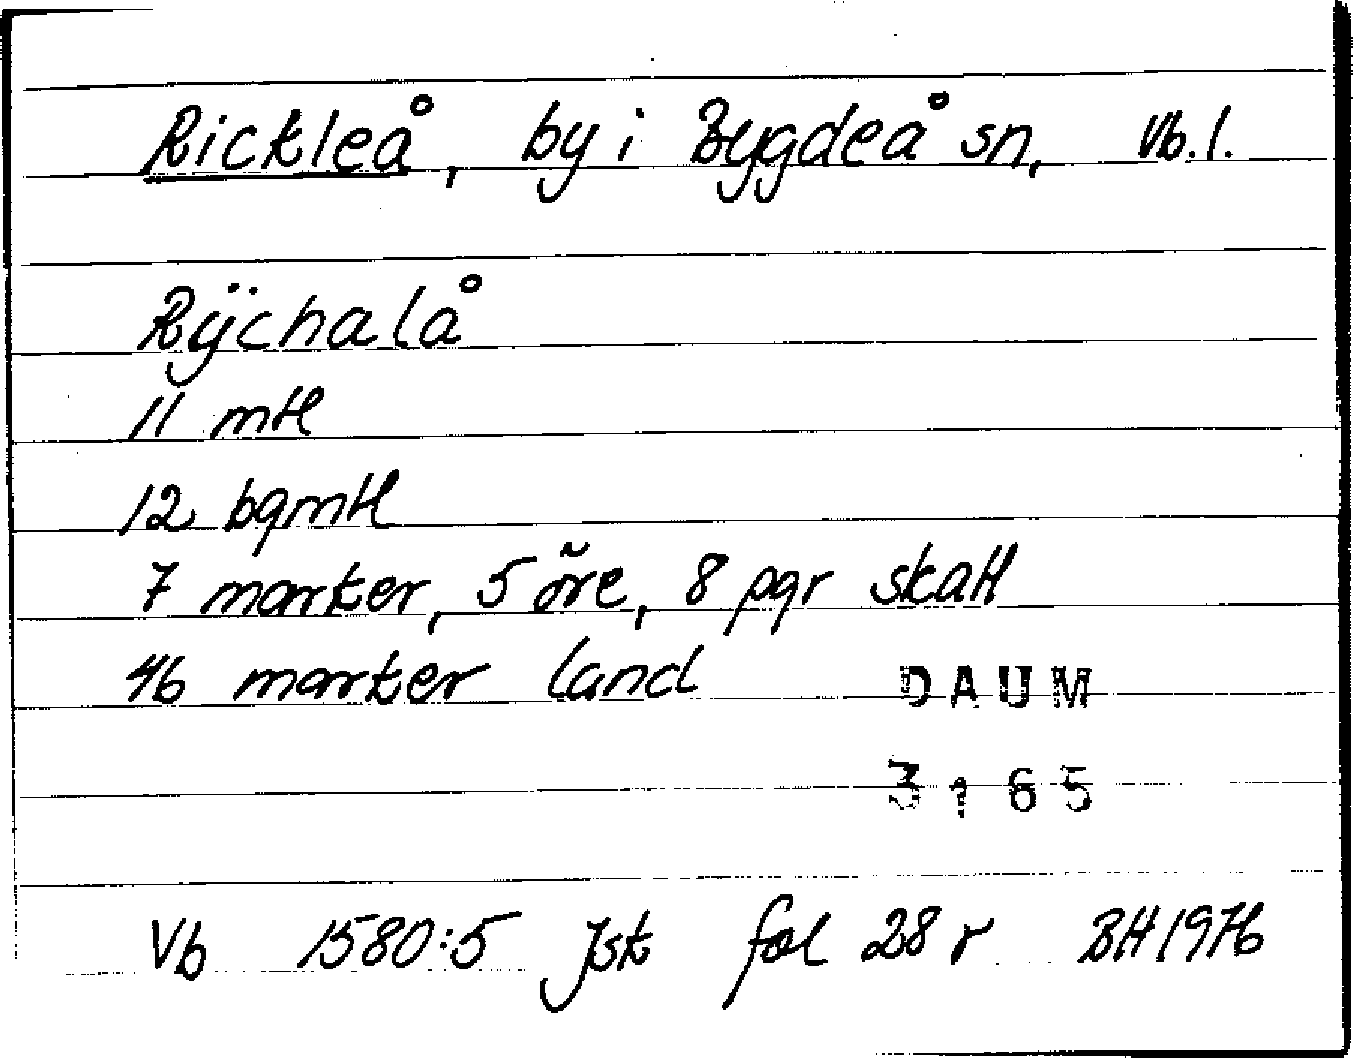 Rickleå, by i Bygdeå sn, Vb. l.
Rÿchalå
11 mtl
12 bgmtl
7 marker, 5 öre, 8 pgr skatt
46 marker land
DAUM
3165
Vb 1580:5 Jsk fol 28 r BH 1976